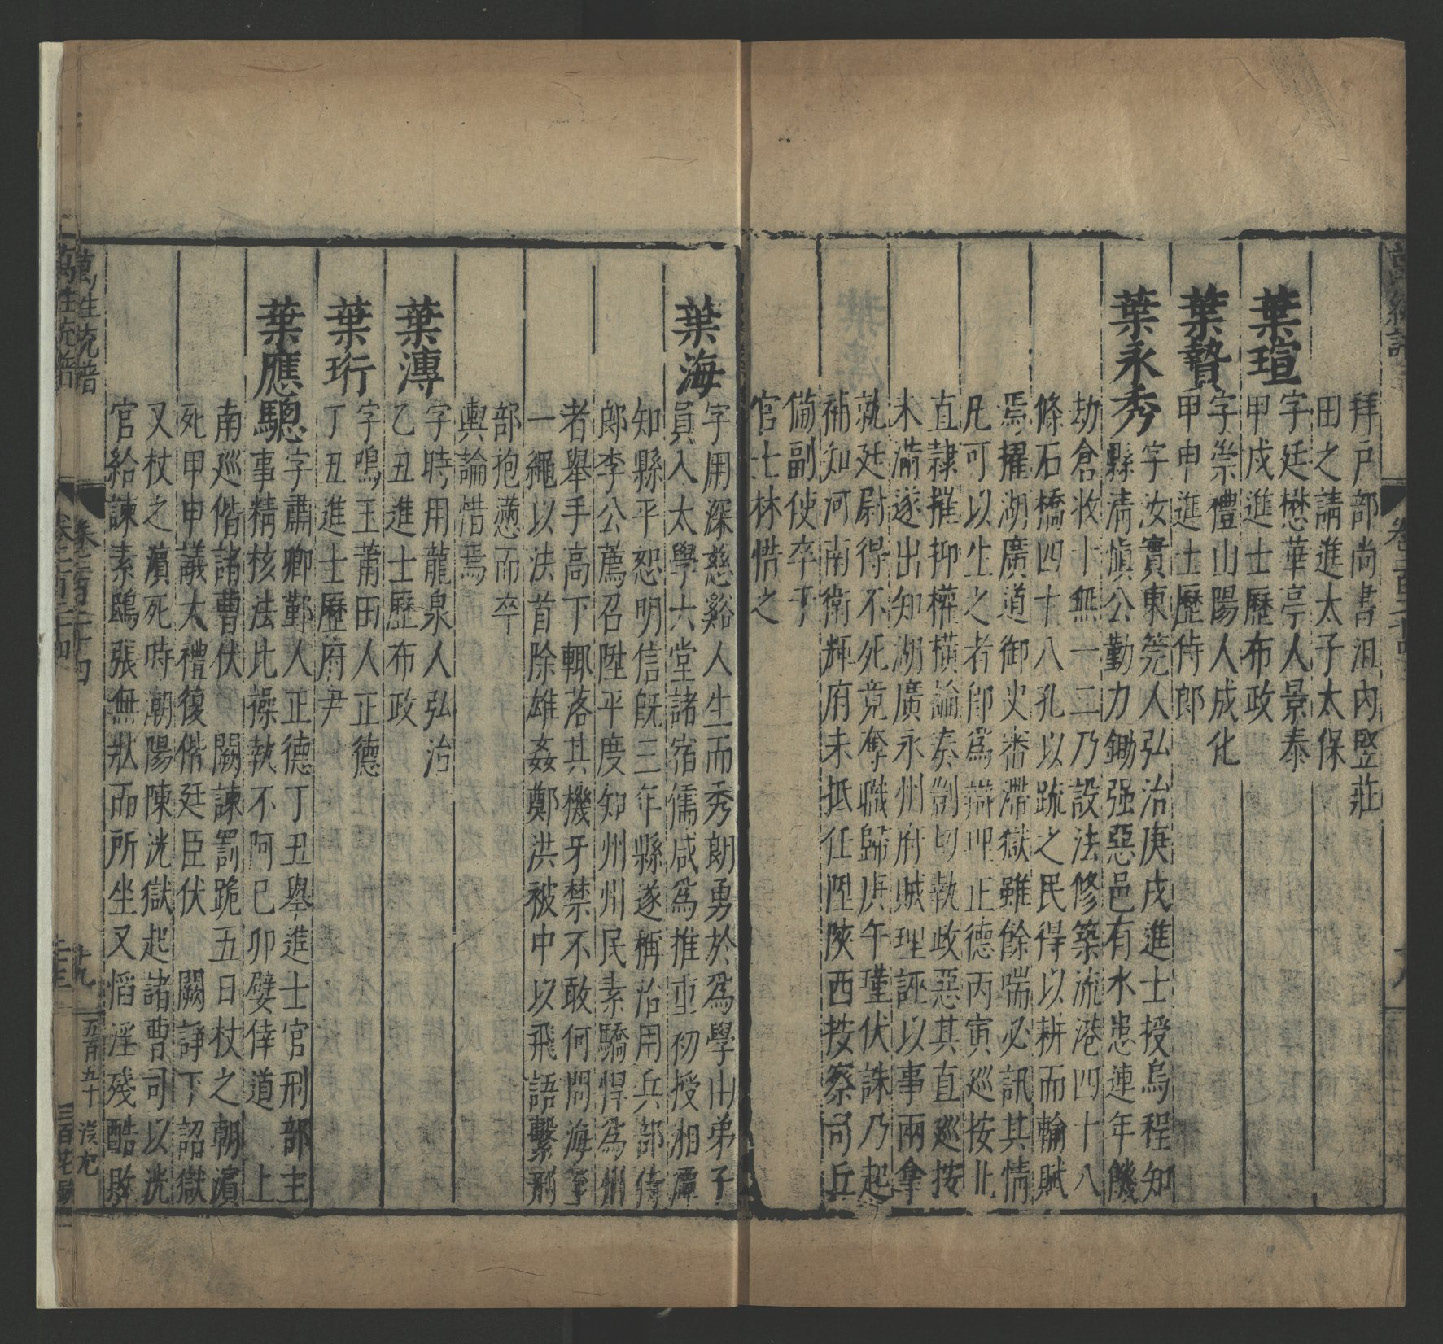 拜戶部尚書沮內竪莊
田之請進太子太保
葉瑄
字廷懋華亭人景泰
甲戌進士歷布政
葉贄
字崇禮山陽人成化
甲申進士歷侍郎
葉永秀
字汝實東莞人弘治庚戌進士授烏程知
縣清慎公勤力鋤强惡邑有水患連年饑
坊倉收十無一二乃設法修築流港四十八
條石橋四十八孔以疏之民得以耕而輸賦
焉擢湖廣道御史審滯獄雖餘喘必訊其情
凡可以生之者卽爲辯理正德丙寅巡按北
直隸摧抑權橫論奏剴切執政惡其直巡按
未滿遂出知湖廣永州府城理誣以事兩拿
就廷尉得不死竟奪職歸庚午瑾伏誅乃起
補知河南衛輝府未抵任陞陜西按察司兵
備副使卒于
官士林惜之
葉海
字用深慈谿人生而秀朗勇於爲學由弟子
員入太學六堂諸宿儒咸爲推重初授湘潭
知縣平恕明信旣三年縣遂稱治用兵部侍
郎李公薦召陞平度知州州民素驕悍爲州
者舉手高下輒落其機牙禁不敢何問海至
一繩以法首除雄姦鄭洪被中以飛語繫刑
部抱懣而卒
輿論惜焉
葉溥
字時用龍泉人弘治
乙丑進士歷布政
葉珩
字鳴玉莆田人正德
丁丑進士歷府尹
葉應驄
字肅卿鄞人正德丁丑舉進士官刑部主
事精核法比操執不阿己卯嬖倖道 上
南巡偕諸曹伏 闕諫罰跪五日杖之朝瀕
死甲申議大禮復偕廷臣伏 闕諍下詔獄
又杖之瀕死時潮陽陳洸獄起諸曹司以洸
官給諫素鴟張無狀而所坐又慆淫殘酷敗
萬姓統譜
卷一百二十四